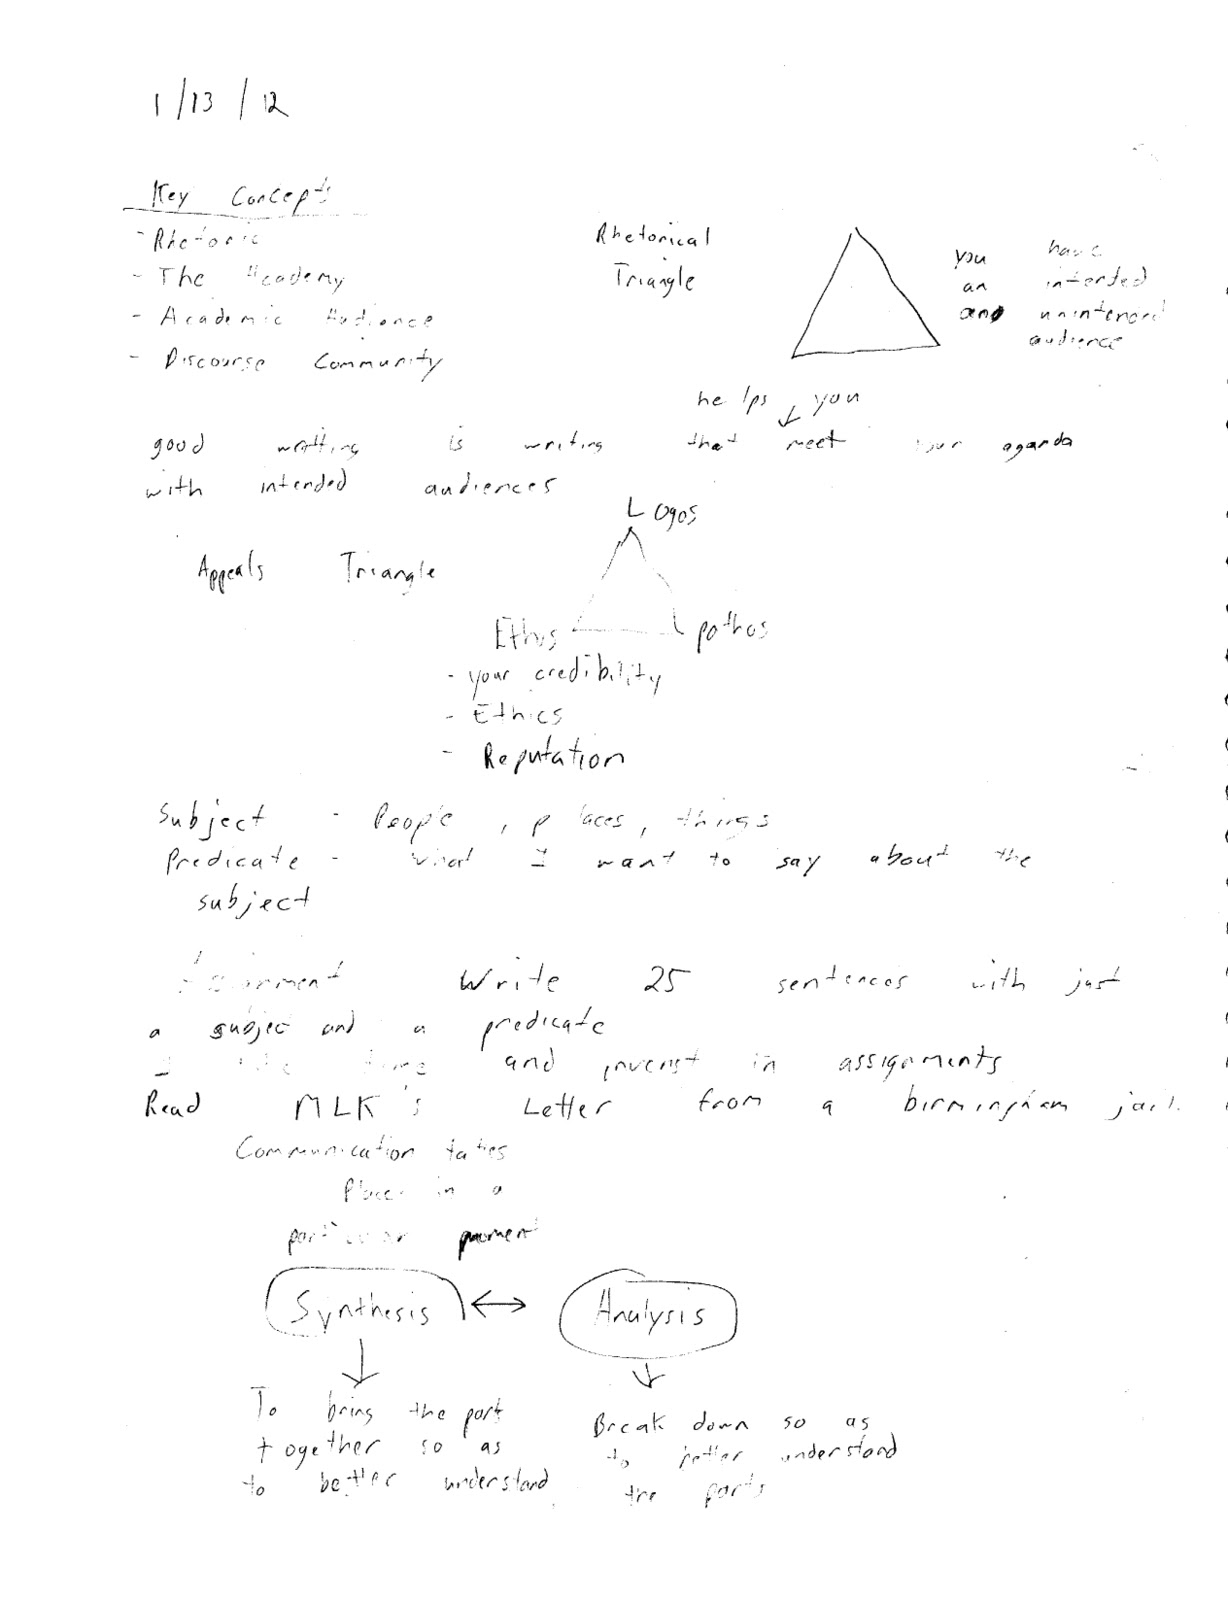 1/13/12
Key Concepts
- Rhetoric
- The Academy
- Academic Audience
- Discourse Community
Rhetorical
Triangle
you have
an intended
and unintended
audience
helps you
good writting is writing that meet your aganda
with intended audiences
Logos
Appeals Triangle
Ethus pathos
- your credibility
- Ethics
- Reputation
Subject - People, places, things
Predicate - what I want to say about the
subject
Assignment Write 25 sentences with just
a subject and a predicate
time and invenst in assignments
Read MLK's Letter from a birmingham jail.
Communication takes
Place in a
particular
Synthesis ↔ Analysis
To bring the part
together so as
to better understand
Break down so as
to better understand
the parts